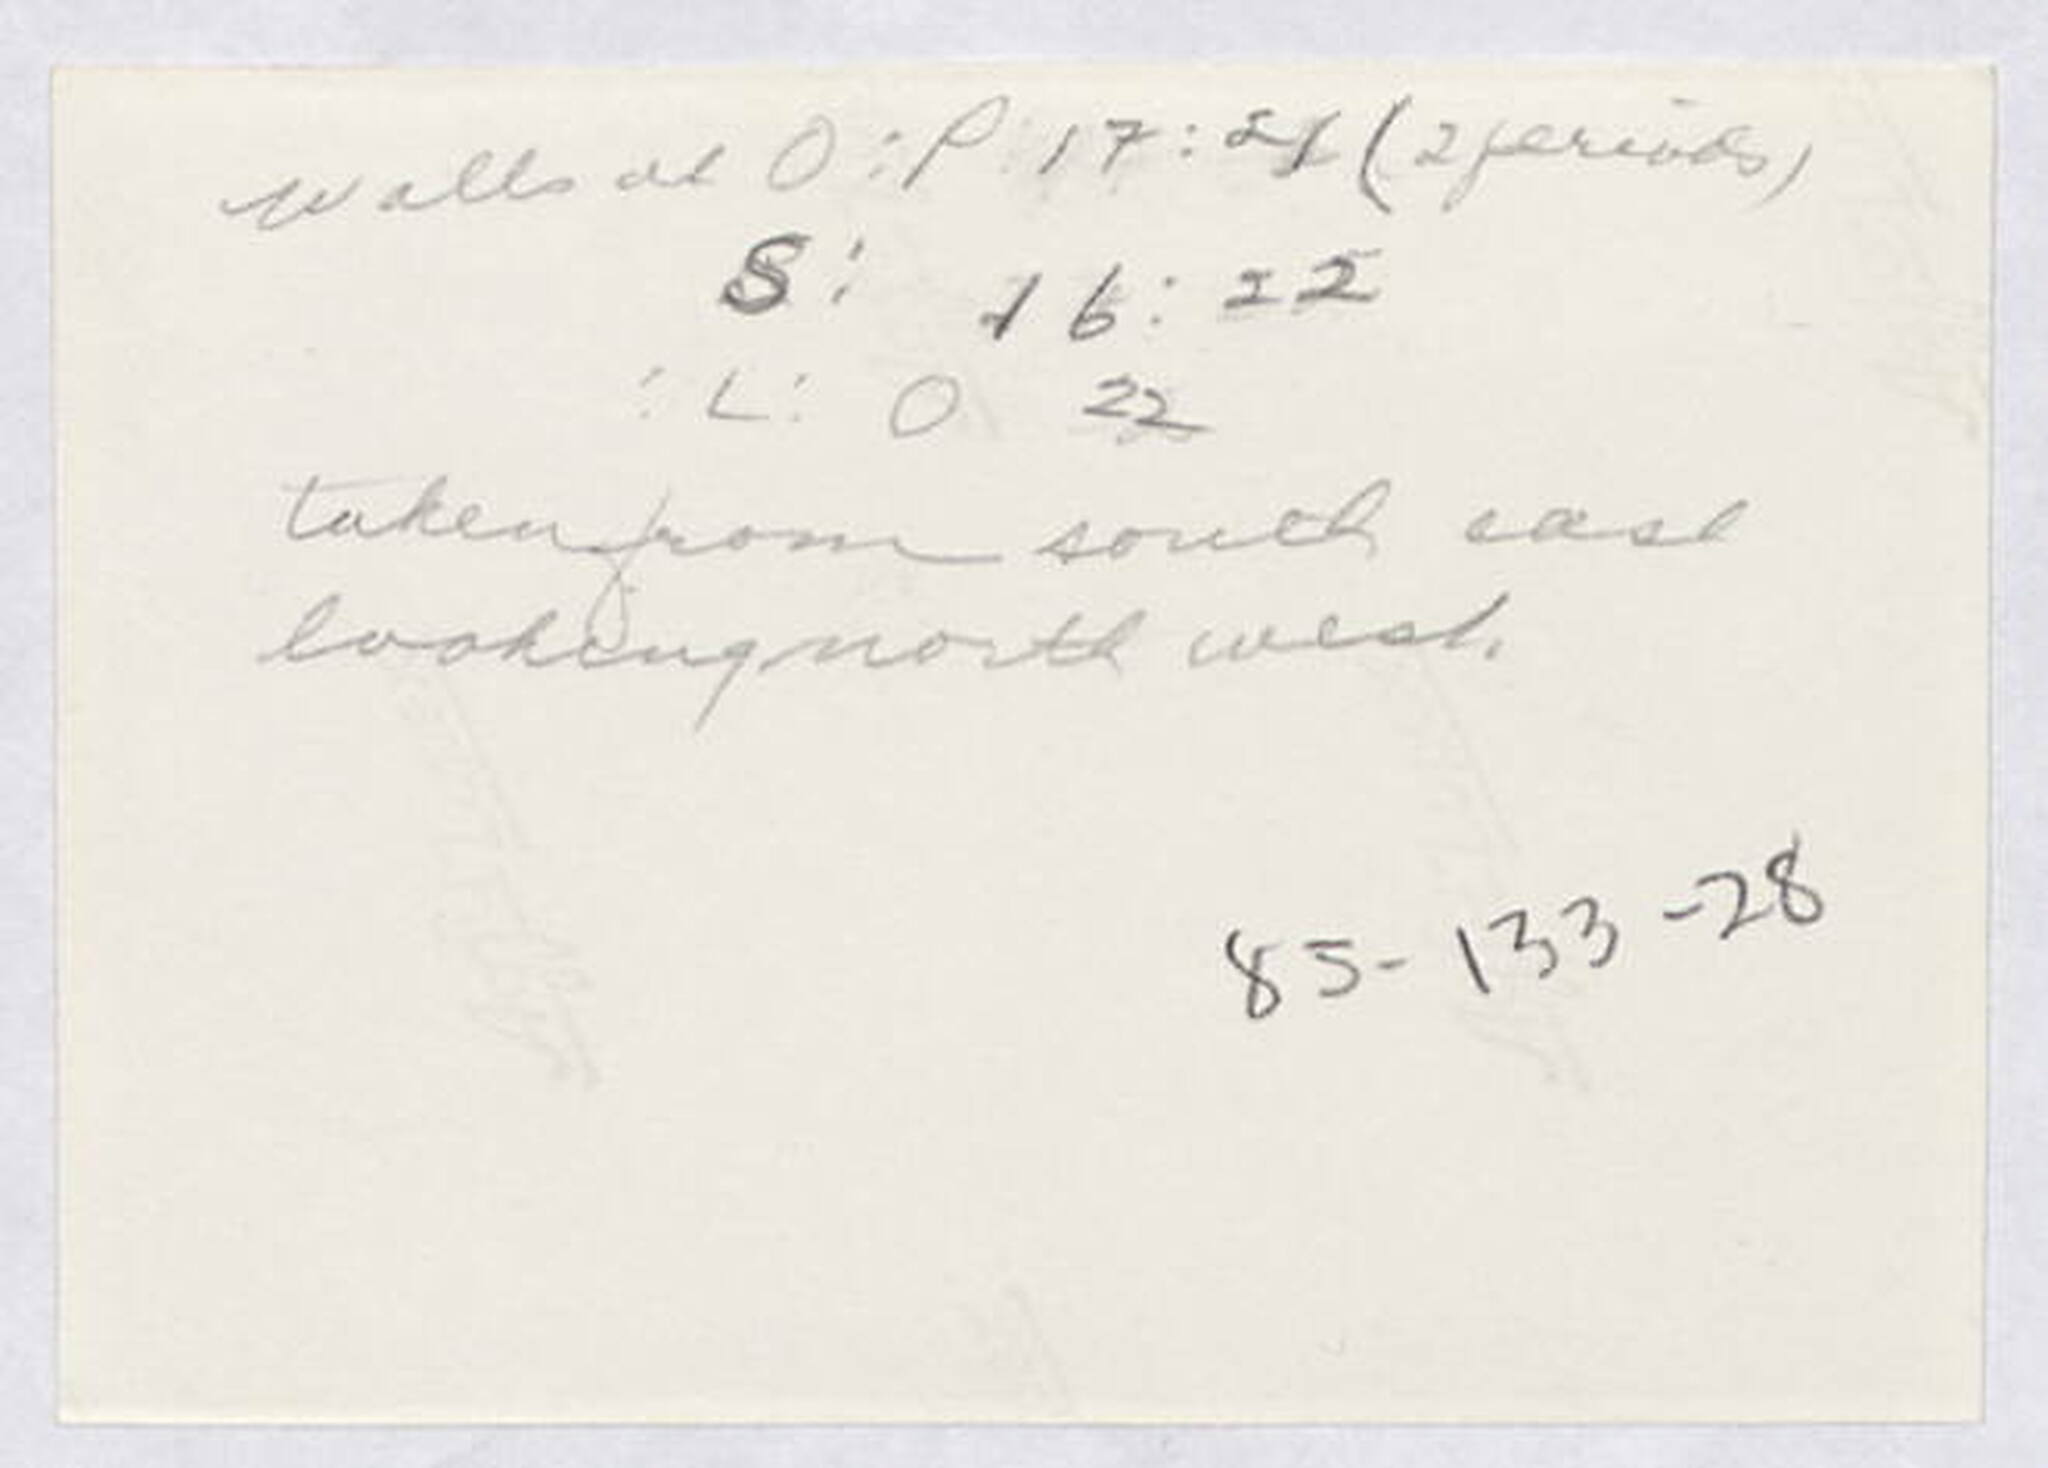 walls at O:P 17:21 (2 periods)
S: 16:22
:L: O 22
taken from south east
looking north west.
85-133-28